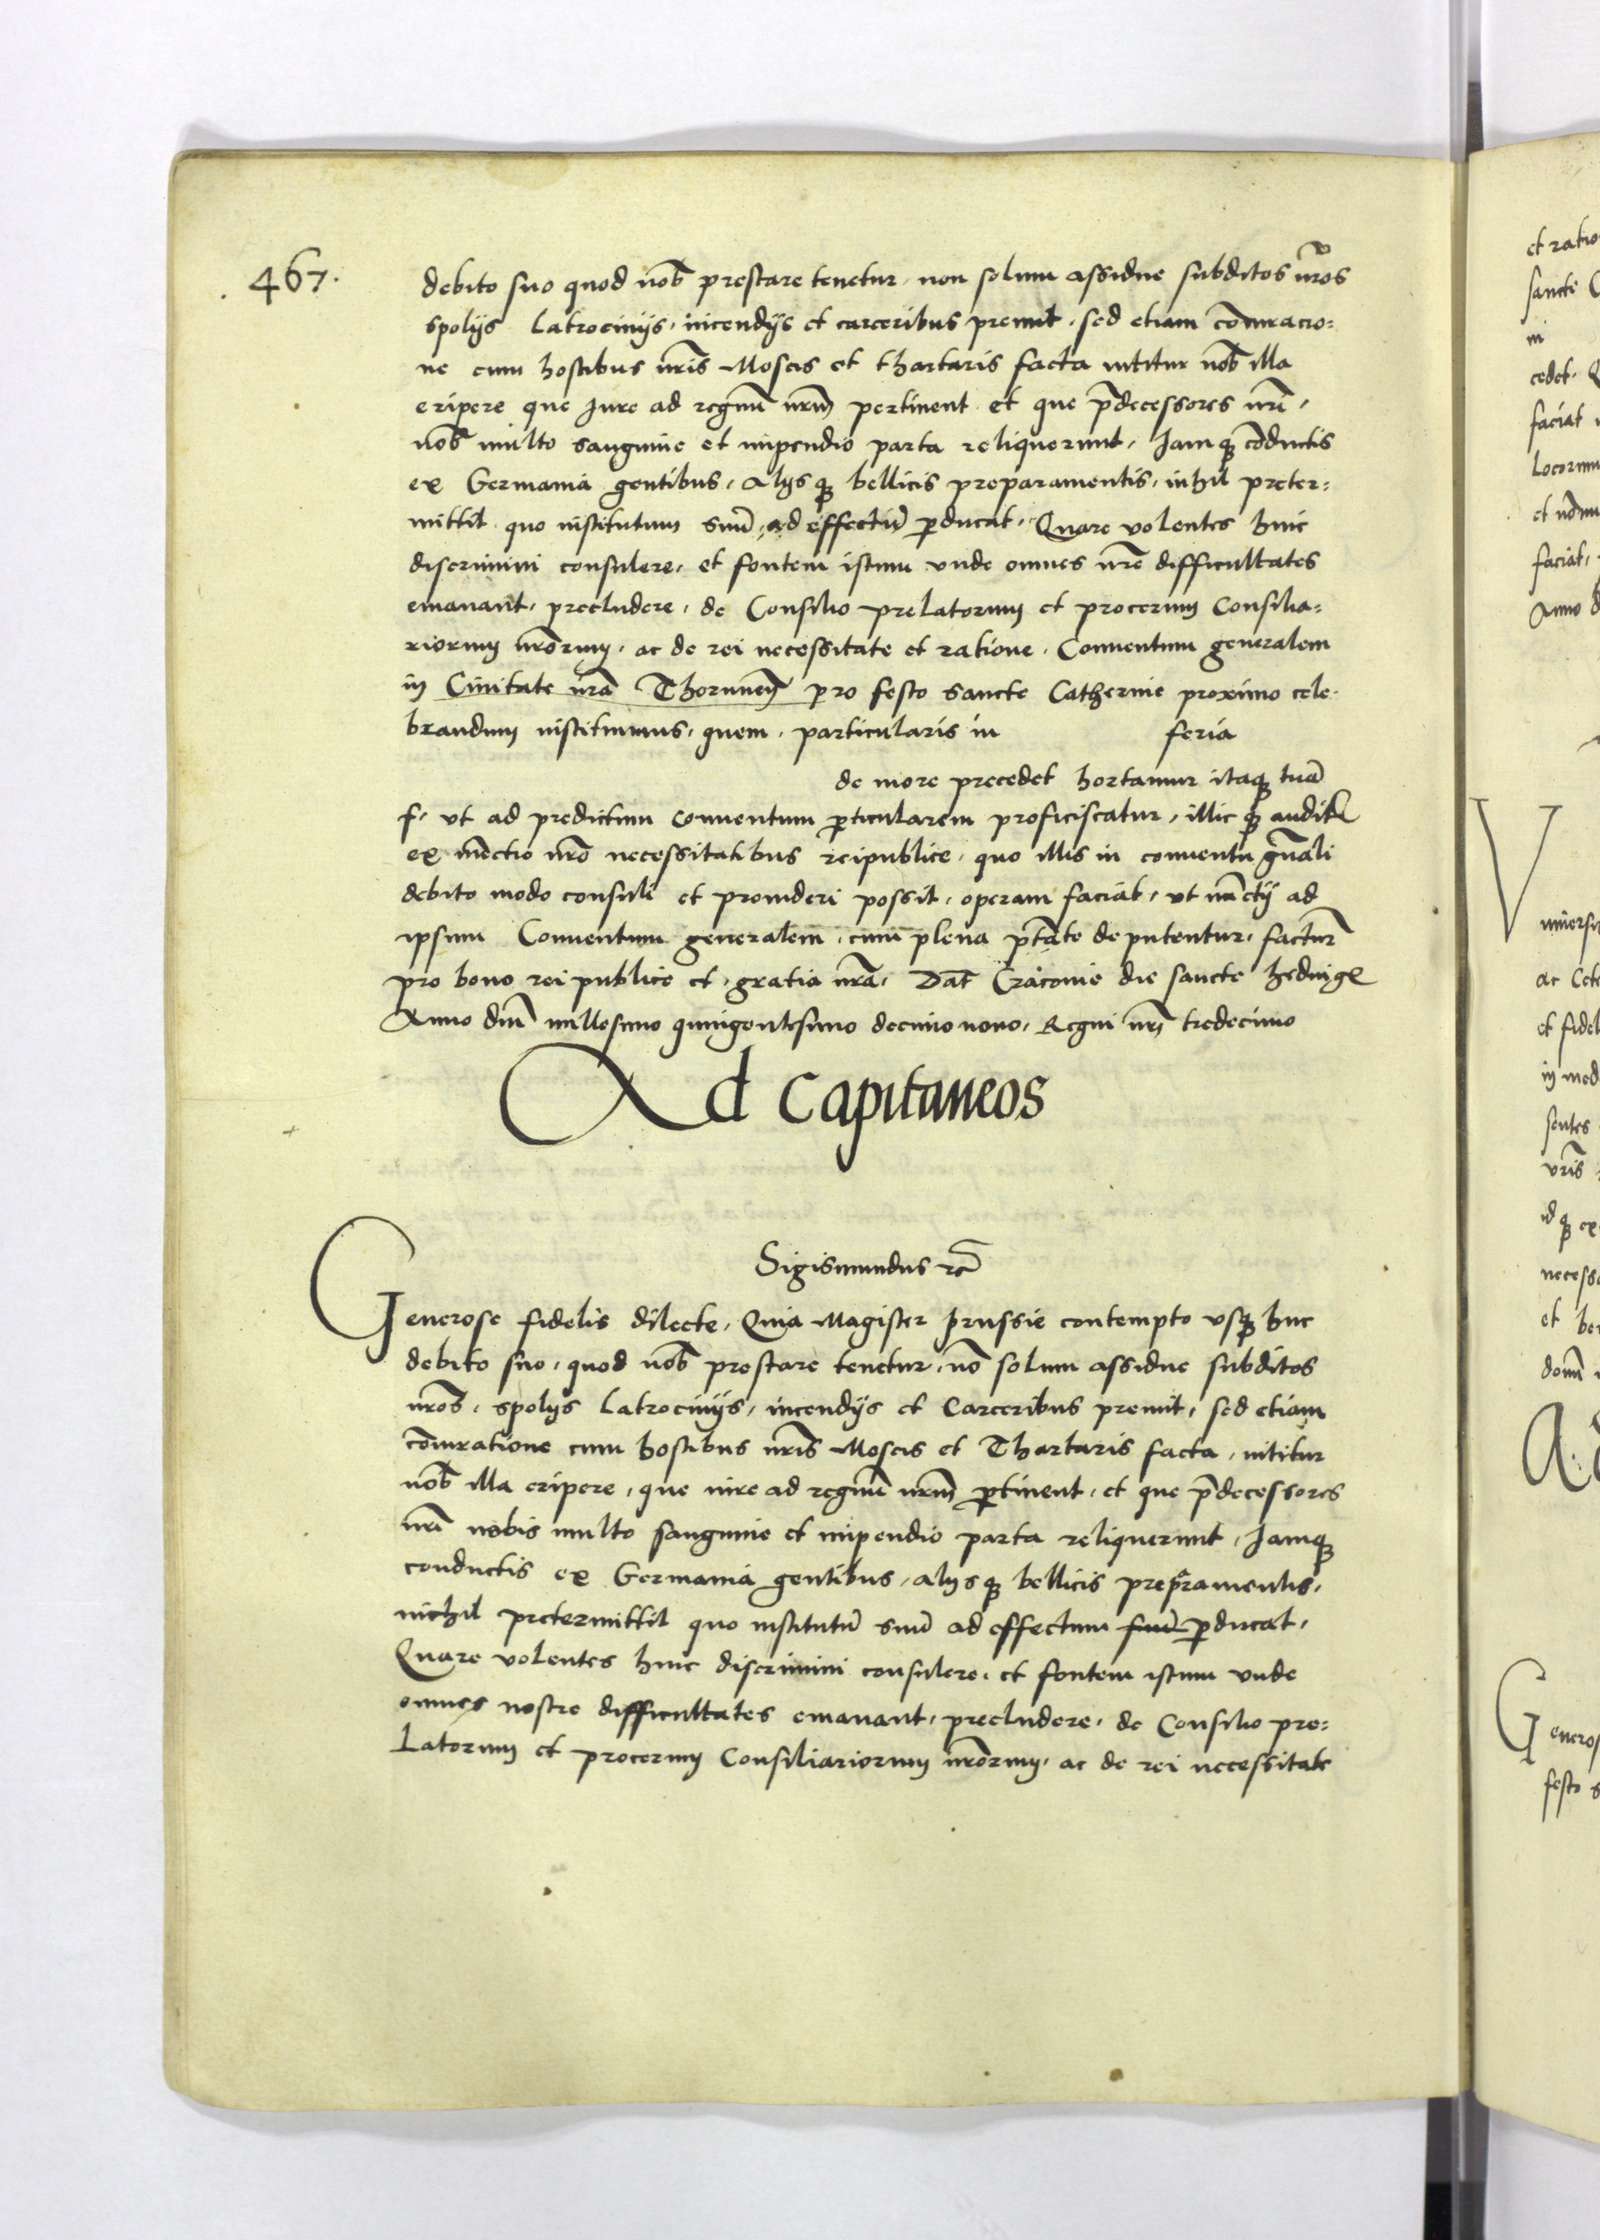 467.
debito suo quod nob̃ prestare tenetur, non solum assidue subditos nr̃os
spolijs Latrocinijs, incendijs et carceribus premit, sed etiam cõiuracio=
ne cum hostibus nr̃is Moscis et thartaris facta nititur nob̃ illa
eripere que Jure ad regnũ nrm̃ pertinent et que p̃decessores nrĩ,
nob̃ multo sanguine et impendio parta reliquerunt, Jamq̨ cõductis
ex Germania gentibus, Alijsq̨ bellicis preparamentis, nihil preter=
mittit quo institutum suũ, ad effectũ ꝑducat, Quare volentes huic
discrimini consulere, et fontem istum vnde omnes nr̃e difficultates
emanant, precludere, de Consilio prelatorum et procerum Consilia=
riorum nr̃orum, ac de rei necessitate et ratione, Conuentum generalem
in Ciuitate nrã Thorunen̄ pro festo sancte Catherine proximo cele-
brandum instituimus, quem, particularis in feria
de more precedet hortamur itaq̨ tuã
f, vt ad predictum conuentum ꝑticularem proficiscatur, illicq̨ audit̃
ex nũctio nrõ necessitatibus reipublice, quo illis in conuentu gñali
debito modo consuli et prouideri possit, operam faciat, vt nũctij ad
ipsum Conuentum generalem, cum plena ptãte deputentur, factur̃
pro bono rei publice et, gratia nrã, Dat̃ Cracouie die sancte hedwigę
Anno dni̅ millesimo quingentesimo decimo nono, Regni nrĩ tredecimo
Ad Capitaneos
Sigismundus rc̃
Generose fidelis dilecte, Quia Magister prussie contempto vsq̨ huc
debito suo, quod nob̃ prestare tenetur, nõ solum assidue subditos
nrõs, spolijs Latrocinijs, incendijs et Carceribus premit, sed etiam
cõiuratione cum hostibus nrĩs Moscis et Thartaris facta, nititur
nob̃ illa eripere, que iure ad regnũ nrm̃ ꝑtinent, et que p̃decessores
nrĩ nobis multo sanguine et impendio parta reliquerunt, Jamq̨
conductis ex Germania gentibus, alijsq̨ bellicis prepãramentis,
nichil pretermittit quo institutũ suũ ad effectum suũ ꝑducat,
Quare volentes huic discrimini consulere, et fontem istum vnde
omnes nostre difficultates emanant, precludere, de Consilio pre=
Latorum et procerum Consiliariorum nrõrum, ac de rei necessitate